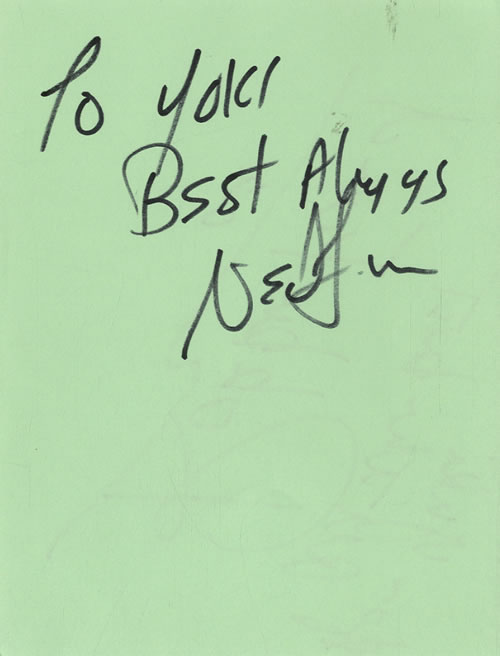 To Yoki
Best Always
Ned